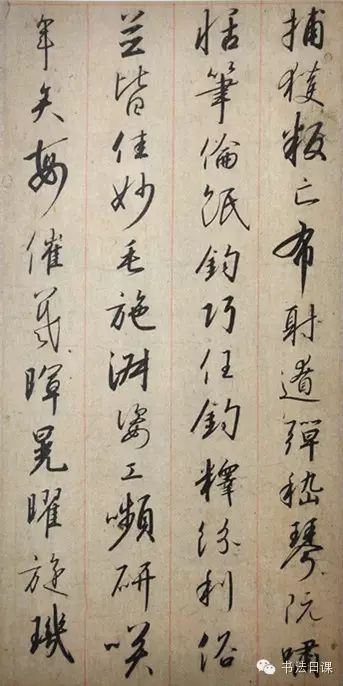 捕獲叛亡布射遼彈嵇琴阮嘯
恬筆倫紙鈞巧任釣釋紛利俗
並皆佳妙毛施淑姿工嚬研咲
年矢每催羲暉晃曜旋璣
书法日课